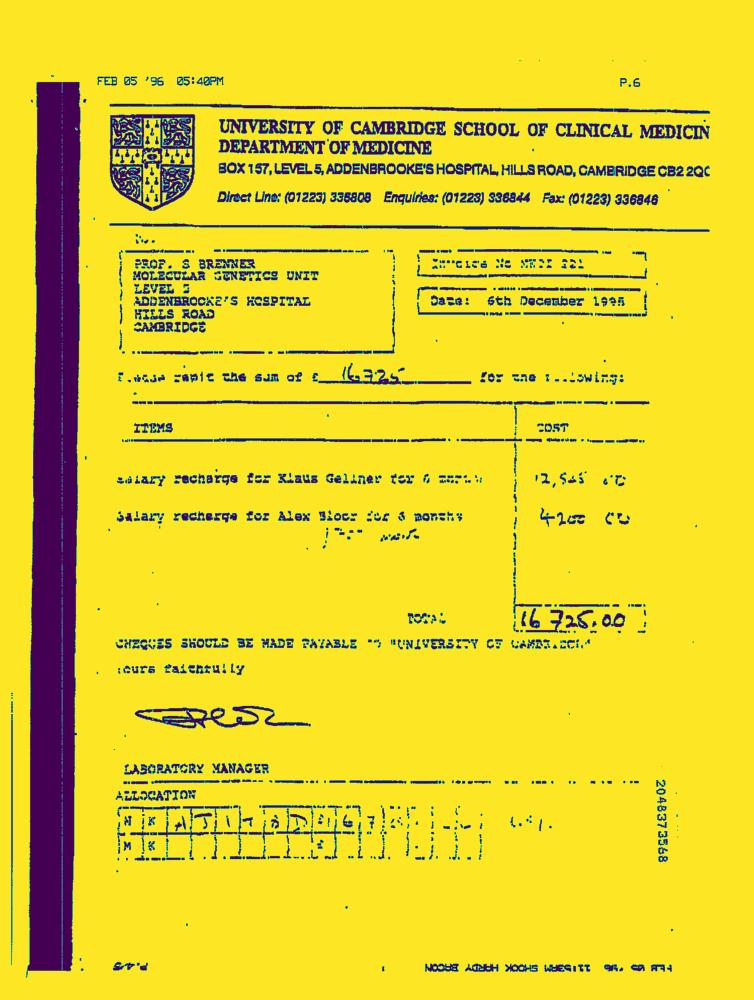 FEB 05 '96 05:40PM P.6
UNIVERSITY OF CAMBRIDGE SCHOOL OF CLINICAL MEDICIN
DEPARTMENT OF MEDICINE
BOX 157, LEVEL 5, ADDENBROOKE'S HOSPITAL, HILLS ROAD, CAMBRIDGE CB2 2QC
Direct Line: (01223) 336808 Enquiries: (01223) 336844 Fax: (01223) 336846
PROF. S BRENNER
MOLECULAR GENETICS UNIT
LEVEL 5
ADDENBROOKE'S HOSPITAL
HILLS ROAD
CAMBRIDGE
Invoice No MEDI 221
Date: 6th December 1995
Please remit the sum of £ 16725 for the following:
ITEMS COST
Salary recharge for Klaus Gellner for 6 months
Salary recharge for Alex Bloor for 6 months 4200
TOTAL 16 725.00
CHEQUES SHOULD BE MADE PAYABLE TO "UNIVERSITY OF CAMBRIDGE"
Yours faithfully
LABORATORY MANAGER
ALLOCATION
N K A J
M K
2048373568
FEB 05 '96 11:53AM SHOOK HARDY BACON P.4/5